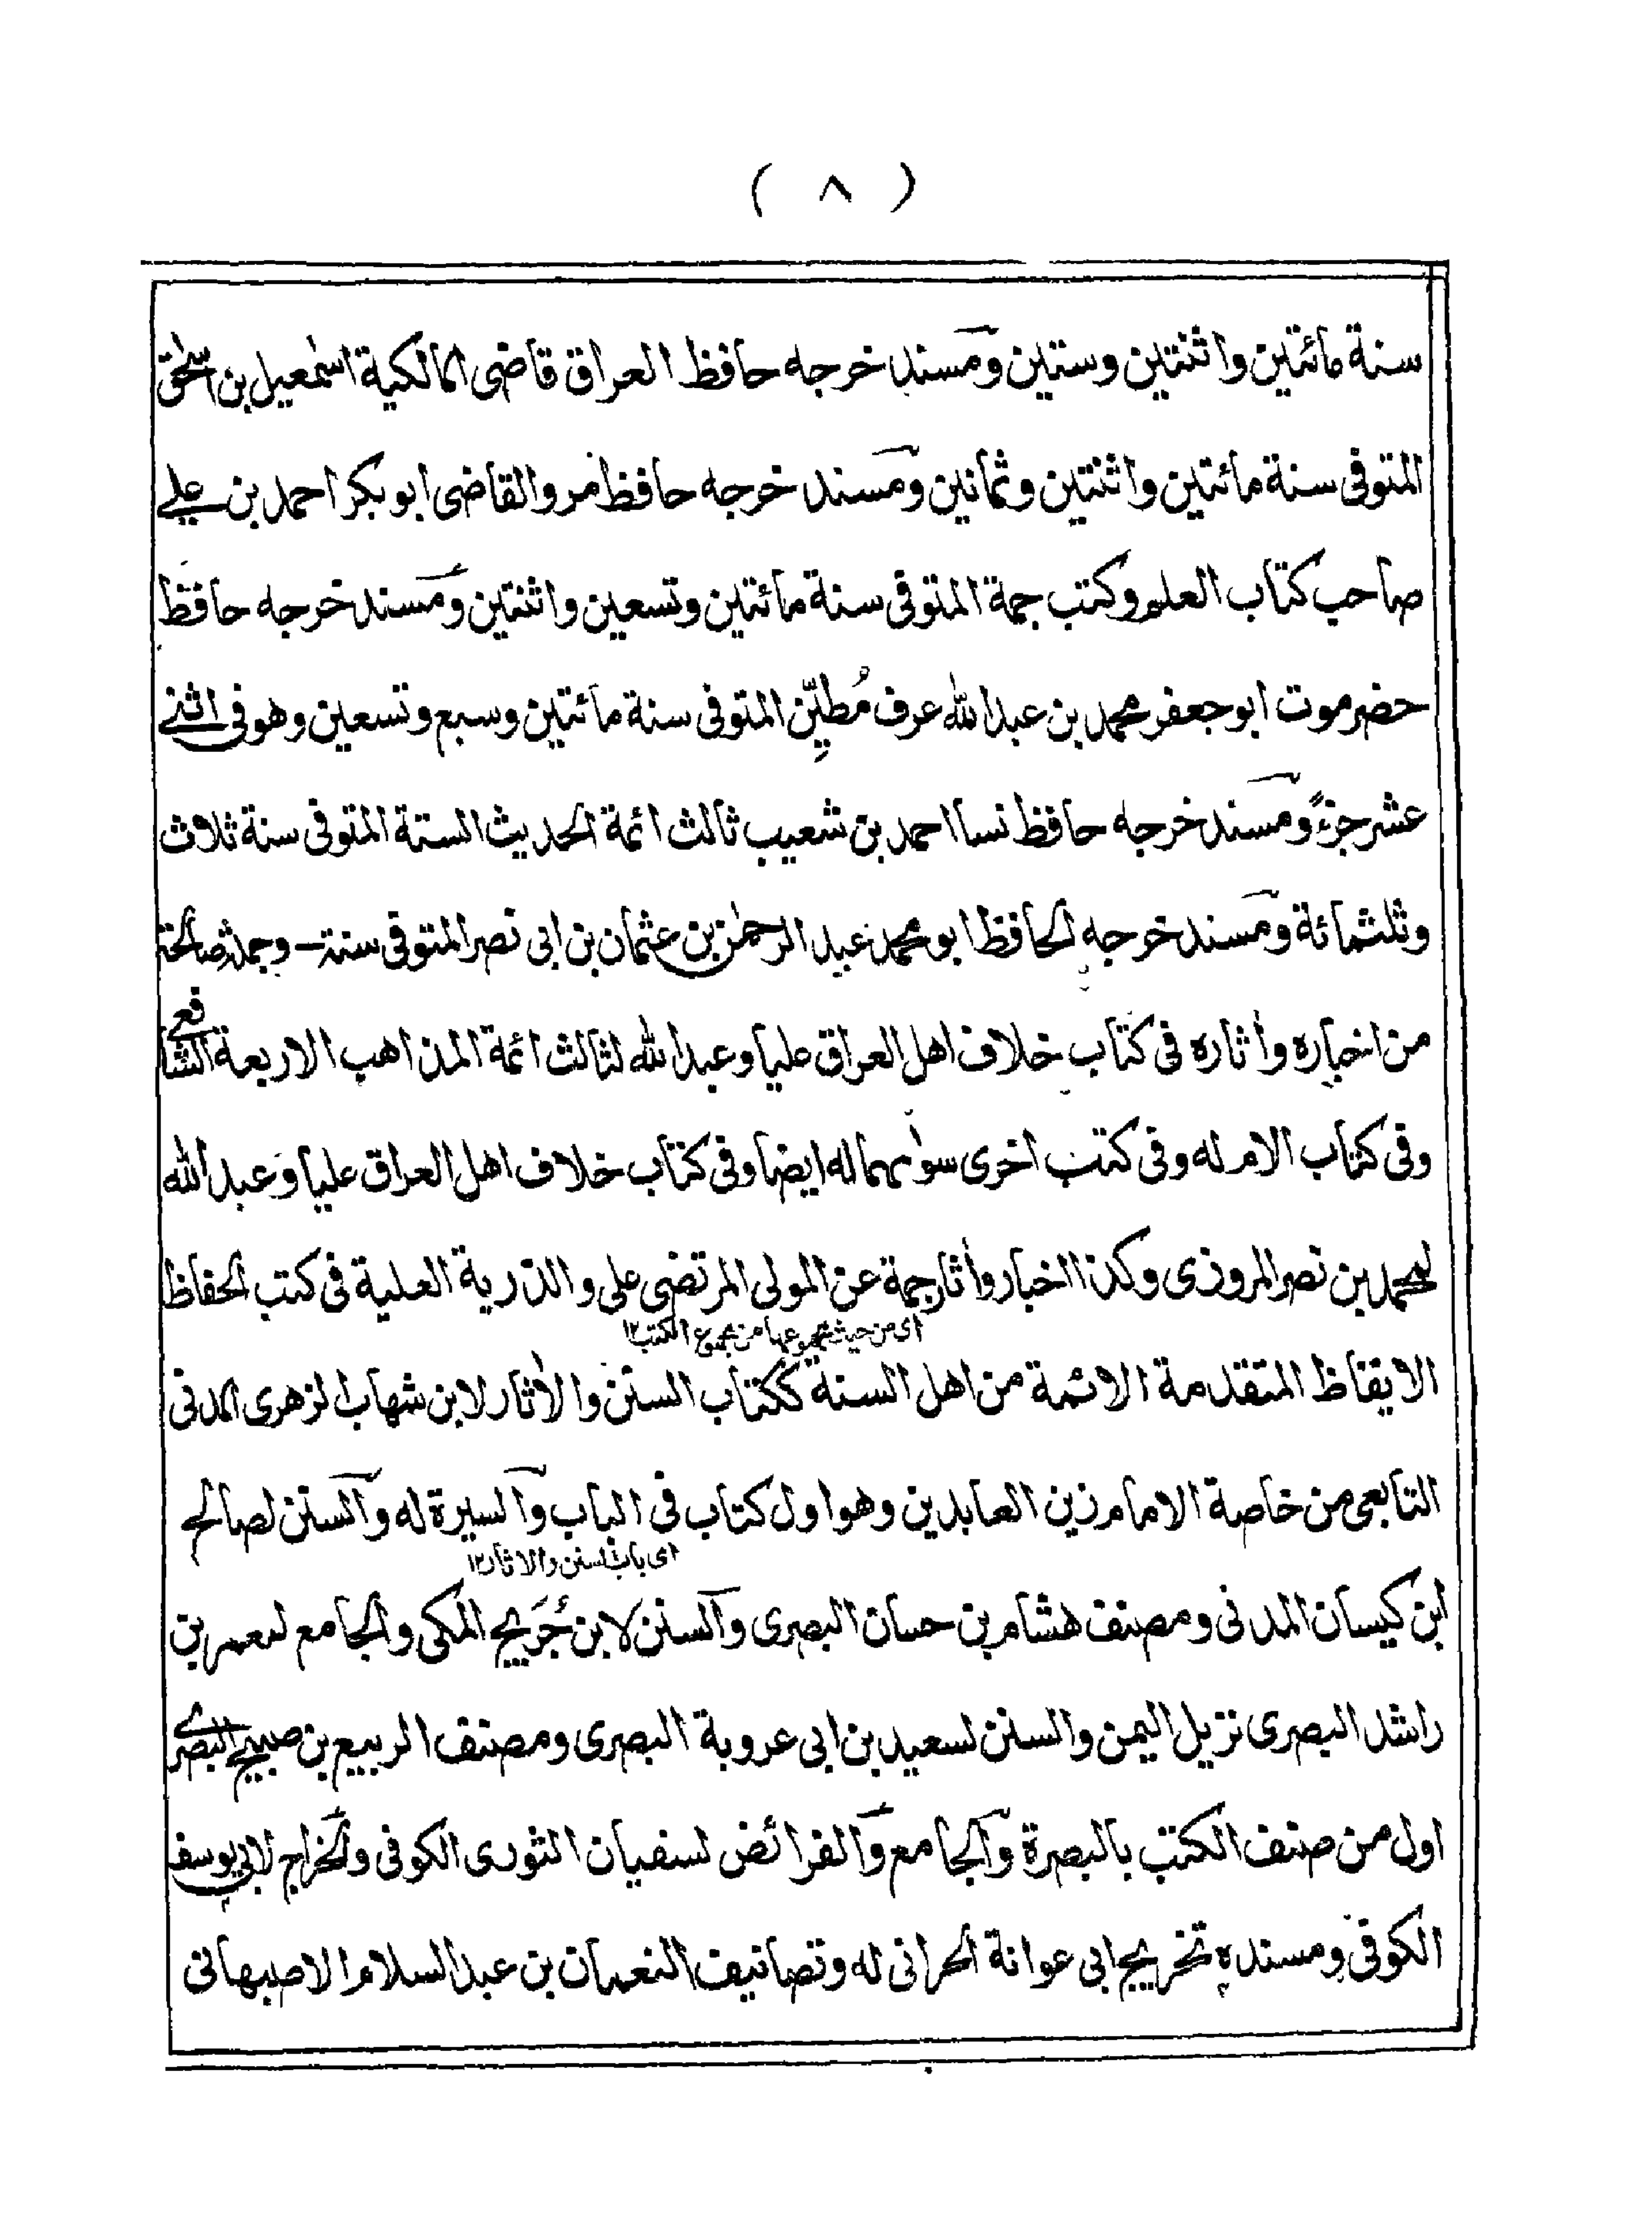 ( ٨ )
سنة مائتين واثنتين وستين ومسند خرجه حافظ العراق قاضى المالكية اسمٰعيل بن اسحٰق
المتوفى سنة مائتين واثنتين وثمانين ومسند خرجه حافظ مرو القاضى ابو بكر احمد بن على
صاحب كتاب العلم وكتب جمة المتوفى سنة مائتين وتسعين واثنتين ومسند خرجه حافظ
حضرموت ابو جعفر محمد بن عبد الله عرف مُطيِّن المتوفى سنة مائتين وسبع وتسعين وهو فى اثنى
عشر جزءً ومسند خرجه حافظ نسا احمد بن شعيب ثالث ائمة الحديث الستة المتوفى سنة ثلاث
وثلثمائة ومسند خرجه الحافظ ابو محمد عبد الرحمٰن بن عثمان بن ابى نصر المتوفى سنة — وجملة صالحة
من اخباره وأثاره فى كتاب خلاف اهل العراق عليا وعبد الله لثالث ائمة المذاهب الاربعة الشافعى
وفى كتاب الام له وفى كتب اخرى سوٰىهما له ايضا وفى كتاب خلاف اهل العراق عليا وعبد الله
لمحمد بن نصر المروزى وكذا اخبار وأثار جمة عن المولى المرتضى على والذرية العلية فى كتب الحفاظ
اى من حيث مجموعها من مجموع الكتب ١٢
الايقاظ المتقدمة الائمة من اهل السنة ككتاب السنن والأثار لابن شهاب الزهرى المدنى
التابعى من خاصة الامام زين العابدين وهو اول كتاب فى الباب والسيرة له والسنن لصالح
اى باب السنن والاثار ١٢
ابن كيسان المدنى ومصنف هشام بن حسان البصرى والسنن لابن جُرَيج المكى والجامع لمعمر بن
راشد البصرى نزيل اليمن والسنن لسعيد بن ابى عروبة البصرى ومصنف الربيع بن صبيح البصرى
اول من صنف الكتب بالبصرة والجامع والفرائض لسفيان الثورى الكوفى والخراج لابى يوسف
الكوفى ومسنده تخريج ابى عوانة الحرانى له وتصانيف النعمان بن عبد السلام الاصبهانى